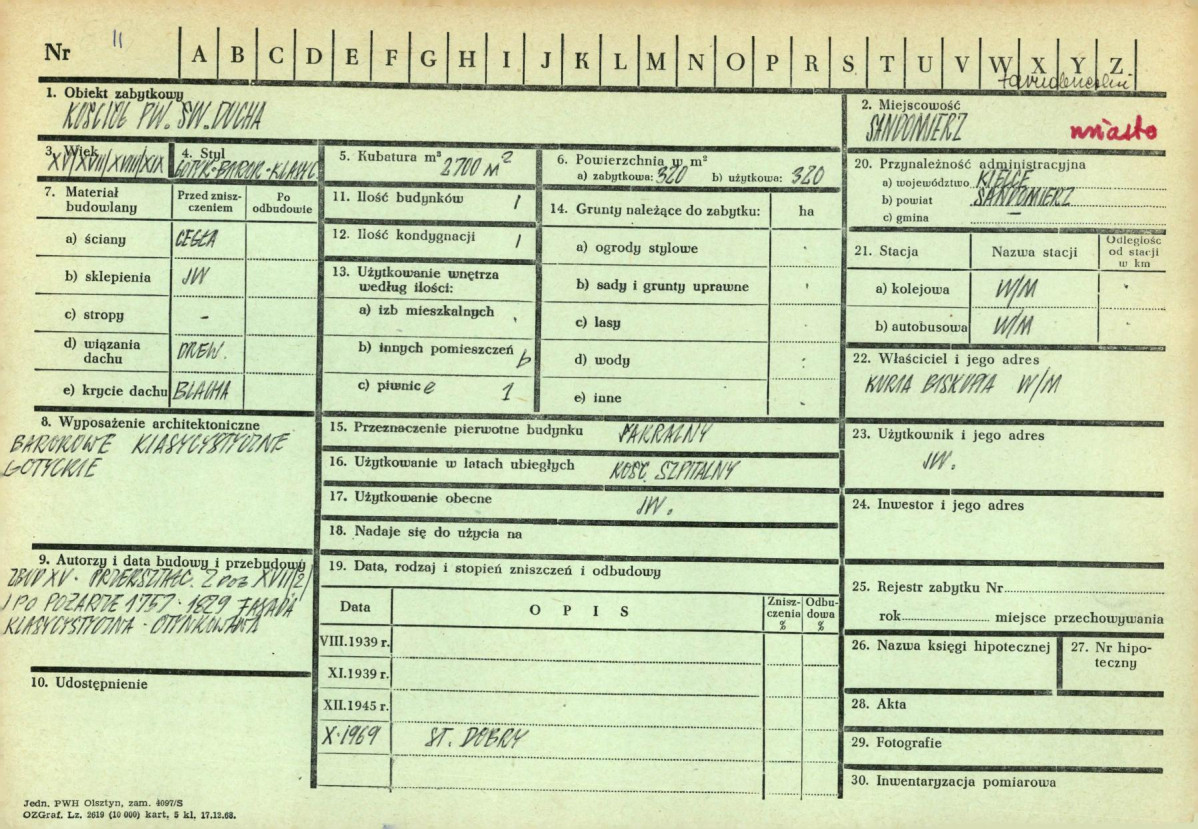 Nr 11 A B C D E F G H I J K L M N O P R S T U V W X Y Z
1. Obiekt zabytkowy
KOŚCIÓŁ PW. ŚW. DUCHA
2. Miejscowość
SANDOMIERZ miasto
3. Wiek
XV/XVII/XVIII/XIX
4. Styl
GOTYK-BAROK-KLASYC
5. Kubatura m³
2700 M²
6. Powierzchnia w m²
a) zabytkowa: 320 b) użytkowa: 320
20. Przynależność administracyjna
a) województwo KIELCE
b) powiat SANDOMIERZ
c) gmina —
7. Materiał budowlany
Przed zniszczeniem
Po odbudowie
a) ściany CEGŁA
b) sklepienia JW
c) stropy -
d) wiązania dachu DREW.
e) krycie dachu BLACHA
11. Ilość budynków 1
12. Ilość kondygnacji 1
13. Użytkowanie wnętrza
według ilości:
a) izb mieszkalnych
b) innych pomieszczeń 6
c) piwnic e 1
14. Grunty należące do zabytku: ha
a) ogrody stylowe
b) sady i grunty uprawne
c) lasy
d) wody
e) inne
21. Stacja
Nazwa stacji
Odległość
od stacji
w km
a) kolejowa W/M
b) autobusowa W/M
22. Właściciel i jego adres
KURIA BISKUPIA W/M
8. Wyposażenie architektoniczne
BAROKOWE KLASYCYSTYCZNE
GOTYCKIE
15. Przeznaczenie pierwotne budynku SAKRALNY
16. Użytkowanie w latach ubiegłych KOŚC. SZPITALNY
17. Użytkowanie obecne JW.
18. Nadaje się do użycia na
23. Użytkownik i jego adres
JW.
24. Inwestor i jego adres
9. Autorzy i data budowy i przebudowy
ZBUD XV - PRZEKSZTAŁC. 2 POŁ XVII/2/
I PO POŻARZE 1757 - 1829 FASADA
KLASYCYSTYCZNA - OTYNKOWANA
10. Udostępnienie
19. Data, rodzaj i stopień zniszczeń i odbudowy
Data
OPIS
Zniszczenia
%
Odbudowa
%
VIII.1939 r.
XI.1939 r.
XII.1945 r.
X.1969 ST. DOBRY
25. Rejestr zabytku Nr
rok miejsce przechowywania
26. Nazwa księgi hipotecznej
27. Nr hipoteczny
28. Akta
29. Fotografie
30. Inwentaryzacja pomiarowa
Jedn. PWH Olsztyn, zam. 4097/S
OZGraf. Lz. 2619 (10 000) kart. 5 kl, 17.12.68.